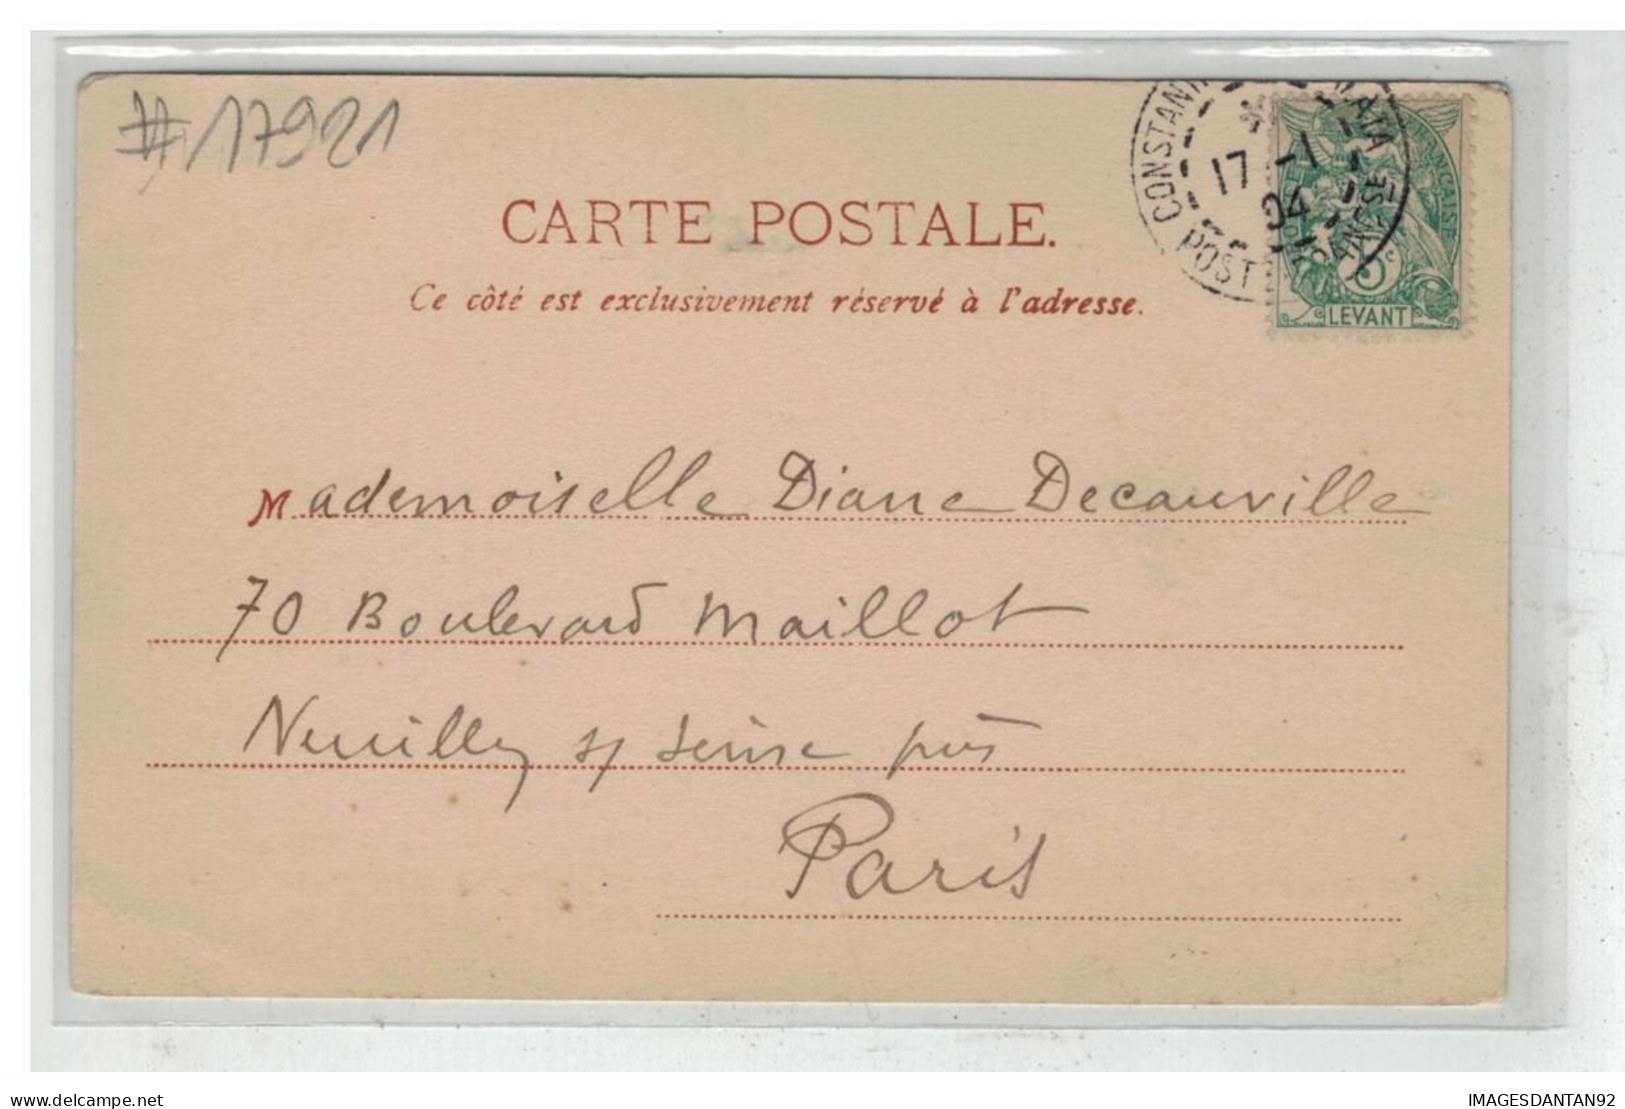 #17921
CONSTANT GALATA
17 -1
04
POSTE FRANÇSE
POSTE FRANÇAISE
5c
LEVANT
CARTE POSTALE.
Ce côté est exclusivement réservé à l'adresse.
Mademoiselle Diane Decauville
70 Boulevard Maillot
Neuilly s/ Seine près
Paris
www.delcampe.net
IMAGESDANTAN92